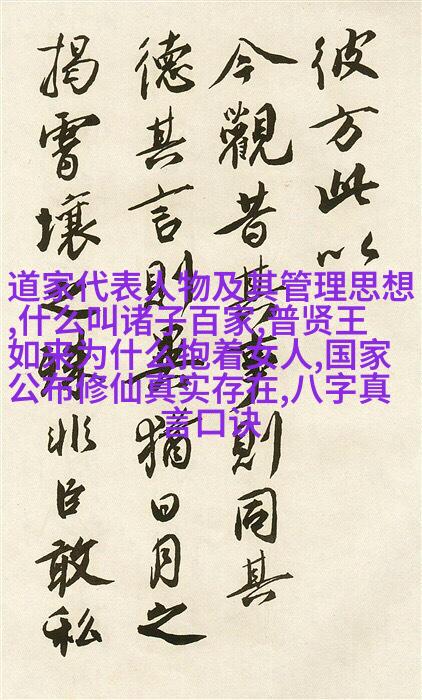 彼方此以
今觀昔其事則同其
德其言則猶日月之
揭霄壤之殊非臣敢私
道家代表人物及其管理思想
,什么叫诸子百家,普贤王
如来为什么抱着女人,国家
公布修仙真实存在,八字真
言口诀